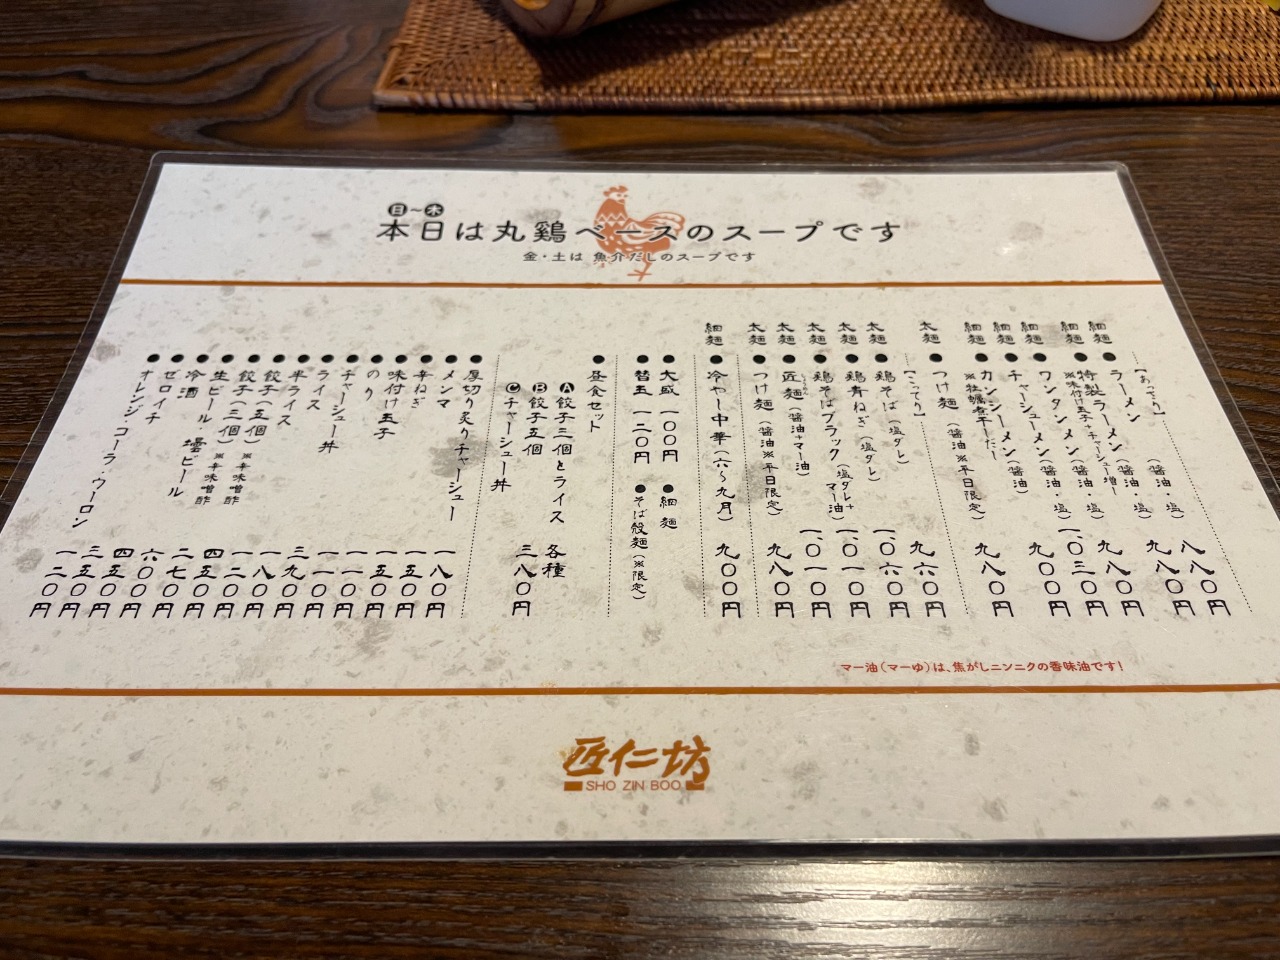 日〜木
本日は丸鶏ベースのスープです
金・土は 魚介だしのスープです
【あっさり】
細麺 ●ラーメン（醤油・塩） 八八〇円
細麺 ●特製ラーメン（醤油・塩） 九八〇円
※味付け玉子＋チャーシュー増し
ワンタンメン（醤油・塩） 九八〇円
細麺 ●チャーシューメン（醤油） 一、〇三〇円
細麺 ● 九〇〇円
※牡蠣煮干しだし
太麺 ●つけ麺（醤油※平日限定） 九八〇円
【こってり】
太麺 ●鶏そば（塩タレ） 九六〇円
太麺 ●鶏青ねぎ（塩タレ） 一、〇六〇円
太麺 ●鶏そばブラック（塩タレ＋マー油） 一、〇一〇円
太麺 ●匠麺（醤油＋マー油） 一、〇一〇円
太麺 ●つけ麺（醤油※平日限定） 九八〇円
細麺 ●冷やし中華（六〜九月） 九〇〇円
●大盛 一〇〇円 ●細麺
●替玉 一二〇円 ●そば殻麺（※限定）
●昼食セット 各種
Ⓐ餃子三個とライス
Ⓑ餃子五個
Ⓒチャーシュー丼 三八〇円
●厚切り炙りチャーシュー 一八〇円
●メンマ 一五〇円
●辛ねぎ 一五〇円
●味付け玉子 一一〇円
●のり 一一〇円
●チャーシュー丼 三九〇円
●ライス 一八〇円
●半ライス 一二〇円
●餃子（五個）※辛味噌酢 四五〇円
●餃子（三個）※辛味噌酢 二七〇円
●生ビール・壜ビール 六〇〇円
●冷酒 四五〇円
●ゼロイチ 三五〇円
●オレンジ・コーラ・ウーロン 一二〇円
マー油（マーゆ）は、焦がしニンニクの香味油です！
匠仁坊
SHO ZIN BOO